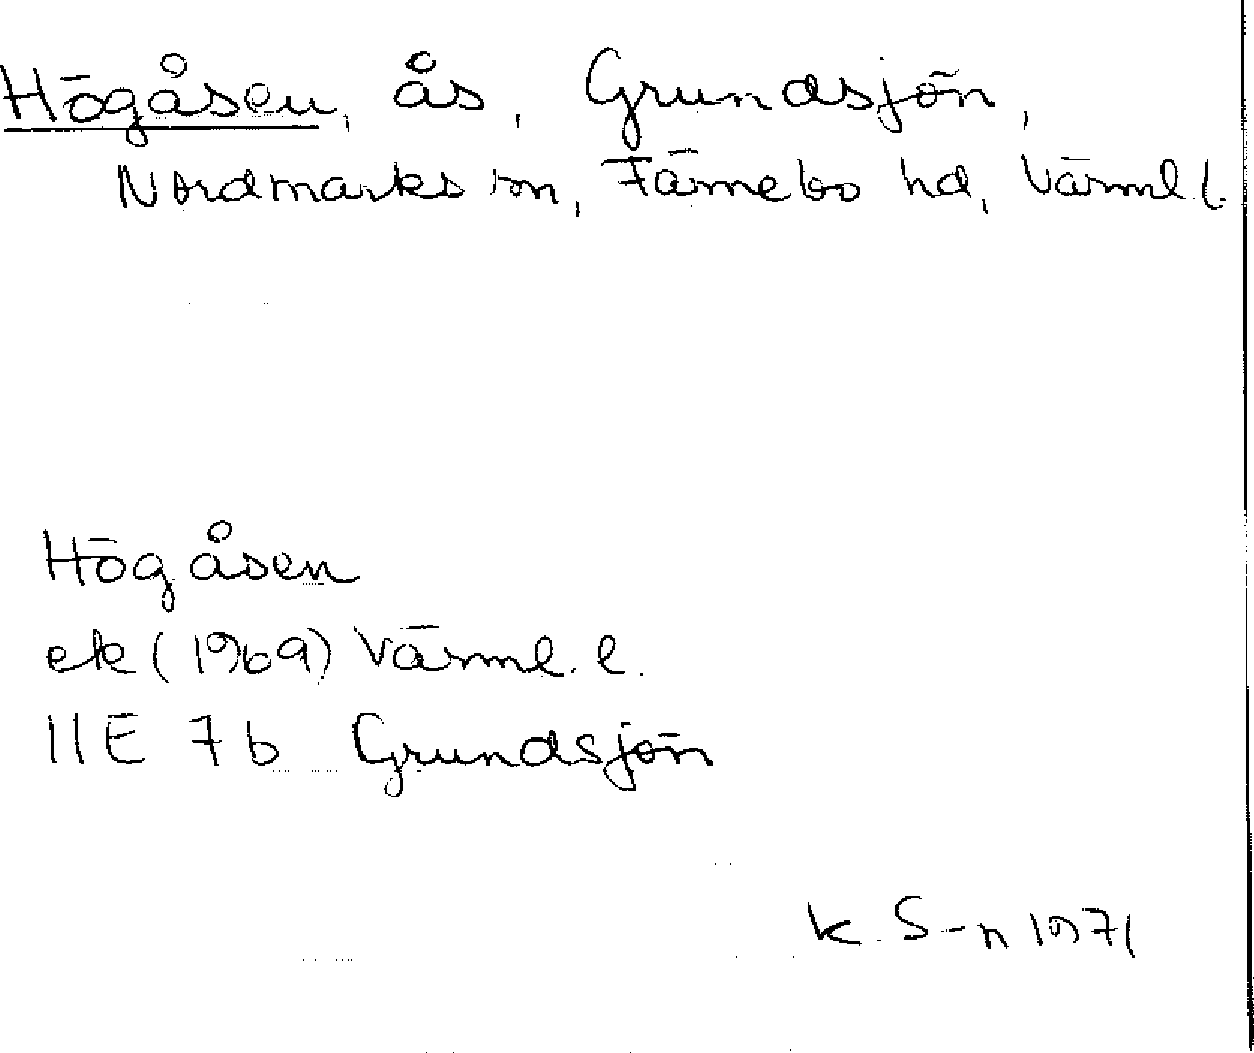 Högåsen, ås, Grundsjön,
Nordmarks sn, Färnebo hd, Värml. l.
Högåsen
ek (1969) Värml. l.
11E 7b Grundsjön
K. S-n 1971